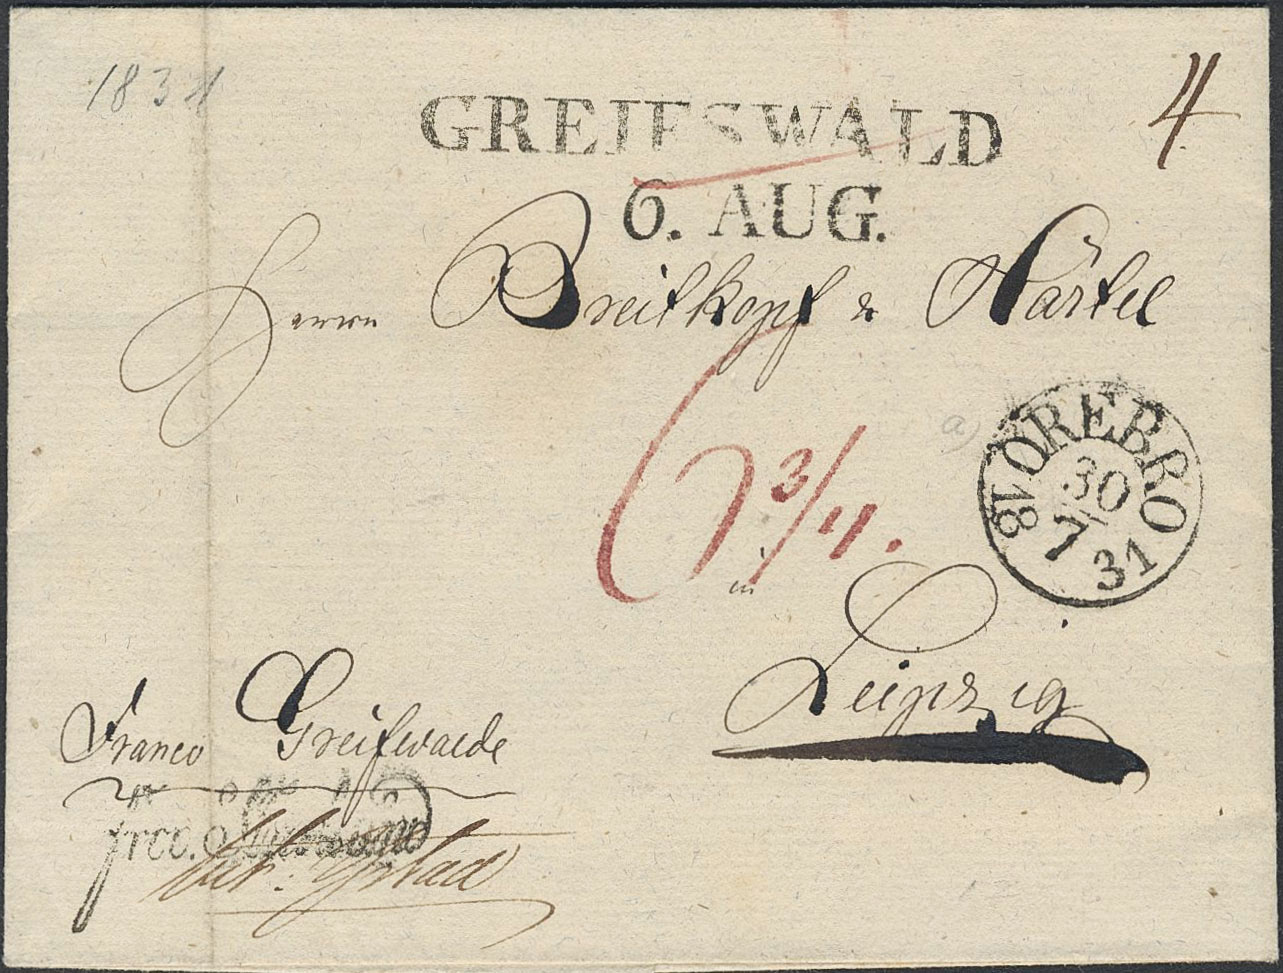 1831
4
GREIFSWALD
6. AUG.
Herrn Breitkopf & Härtel
a)
ÖREBRO
30
7
1831
6 3/4.
in
Leipzig
Franco Greifwalde
frco.
Ystad